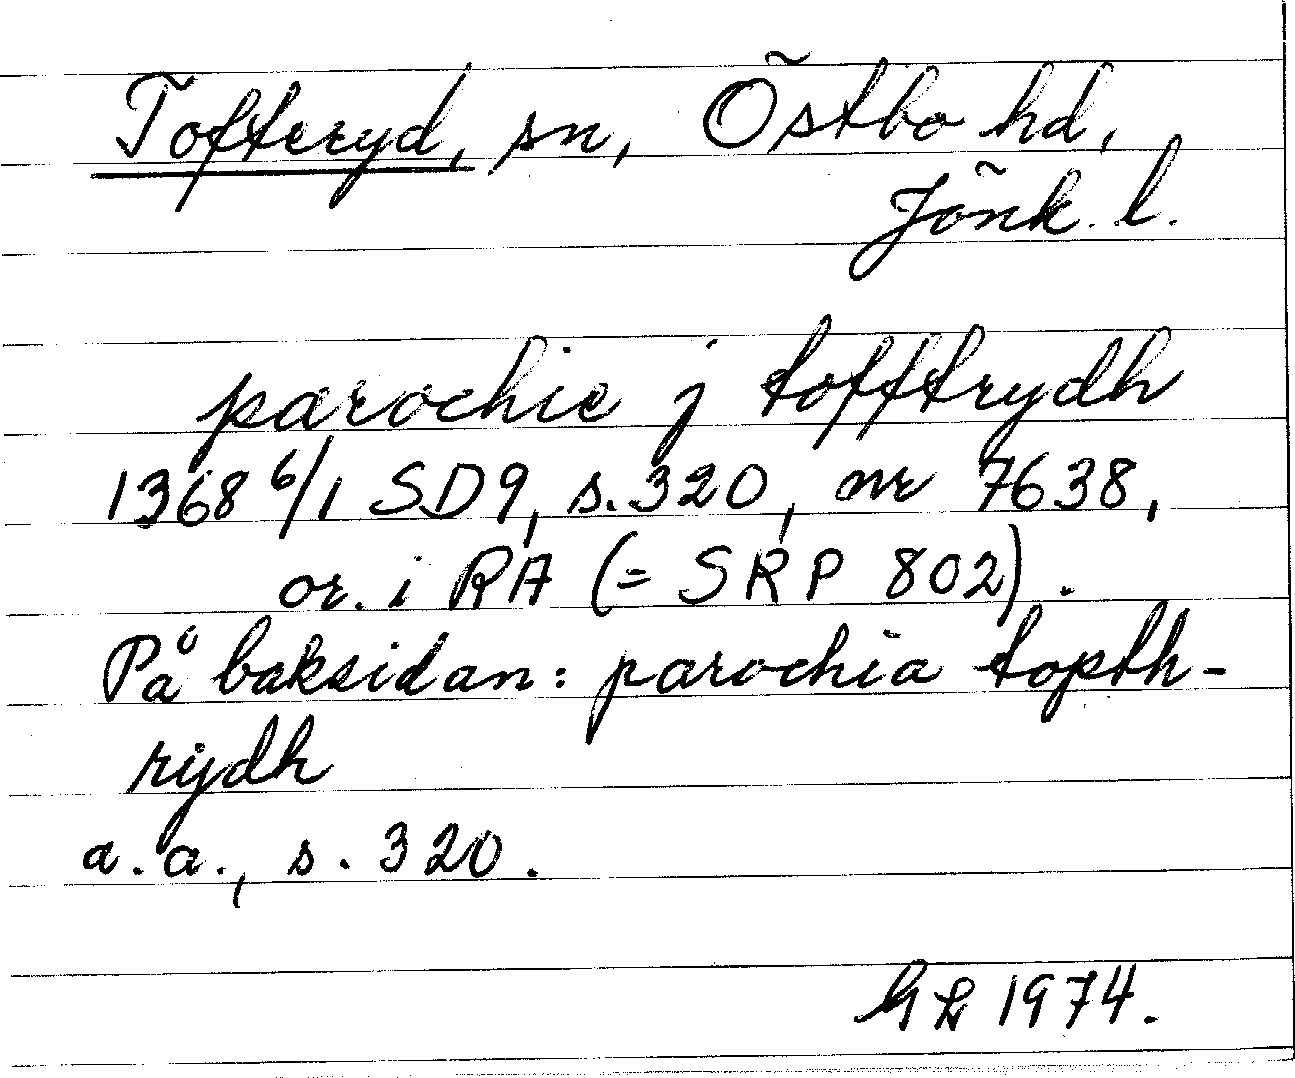 Tofteryd, sn, Östbo hd,
Jönk. l.
parochie j tofftrydh
1368 6/1 SD9, s. 320, nr 7638,
or. i RA (= SRP 802).
På baksidan: parochia topth-
rijdh
a.a., s. 320.
GL 1974.